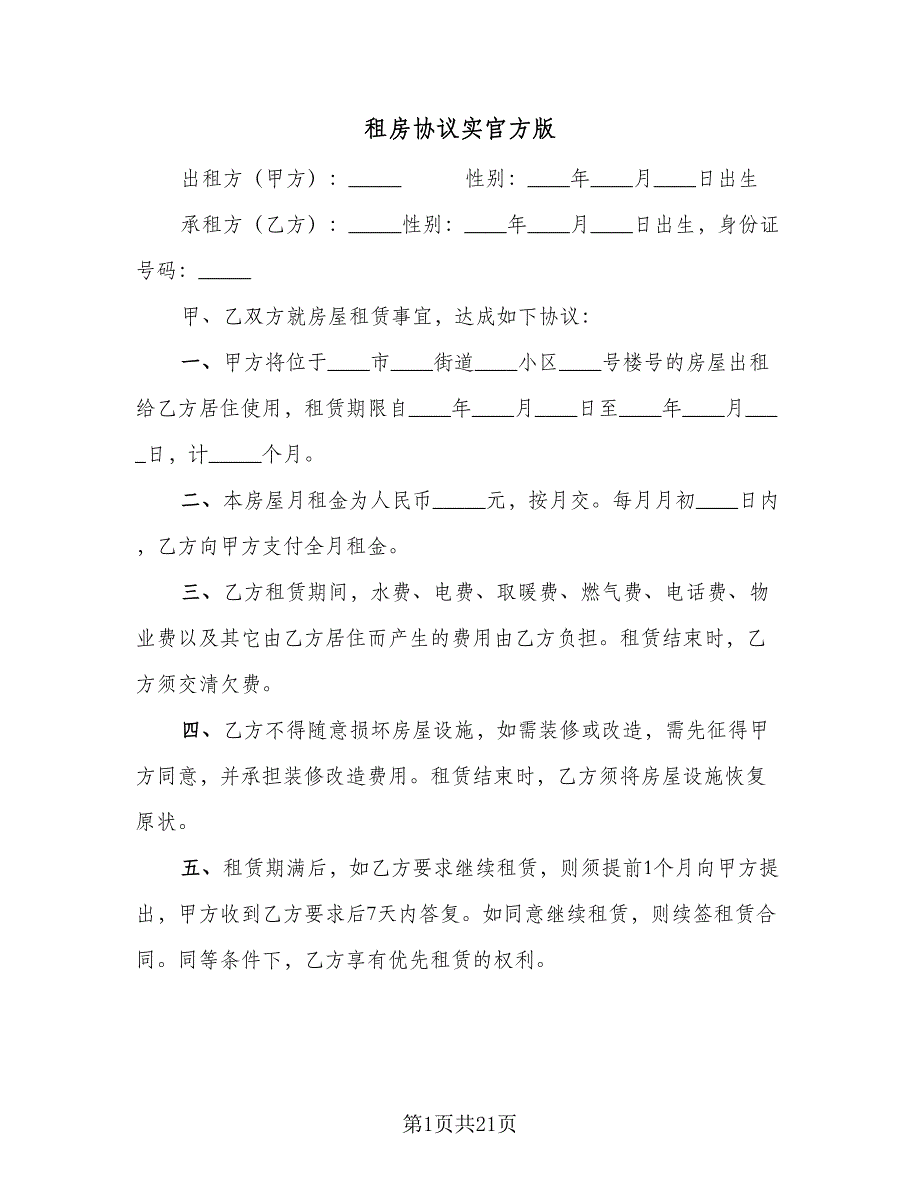 租房协议实官方版
出租方（甲方）：_____ 性别：____年____月____日出生
承租方（乙方）：_____性别：____年____月____日出生，身份证
号码：_____
甲、乙双方就房屋租赁事宜，达成如下协议：
一、甲方将位于____市____街道____小区____号楼号的房屋出租
给乙方居住使用，租赁期限自____年____月____日至____年____月___
_日，计_____个月。
二、本房屋月租金为人民币_____元，按月交。每月月初____日内
，乙方向甲方支付全月租金。
三、乙方租赁期间，水费、电费、取暖费、燃气费、电话费、物
业费以及其它由乙方居住而产生的费用由乙方负担。租赁结束时，乙
方须交清欠费。
四、乙方不得随意损坏房屋设施，如需装修或改造，需先征得甲
方同意，并承担装修改造费用。租赁结束时，乙方须将房屋设施恢复
原状。
五、租赁期满后，如乙方要求继续租赁，则须提前1个月向甲方提
出，甲方收到乙方要求后7天内答复。如同意继续租赁，则续签租赁合
同。同等条件下，乙方享有优先租赁的权利。
第1页共21页